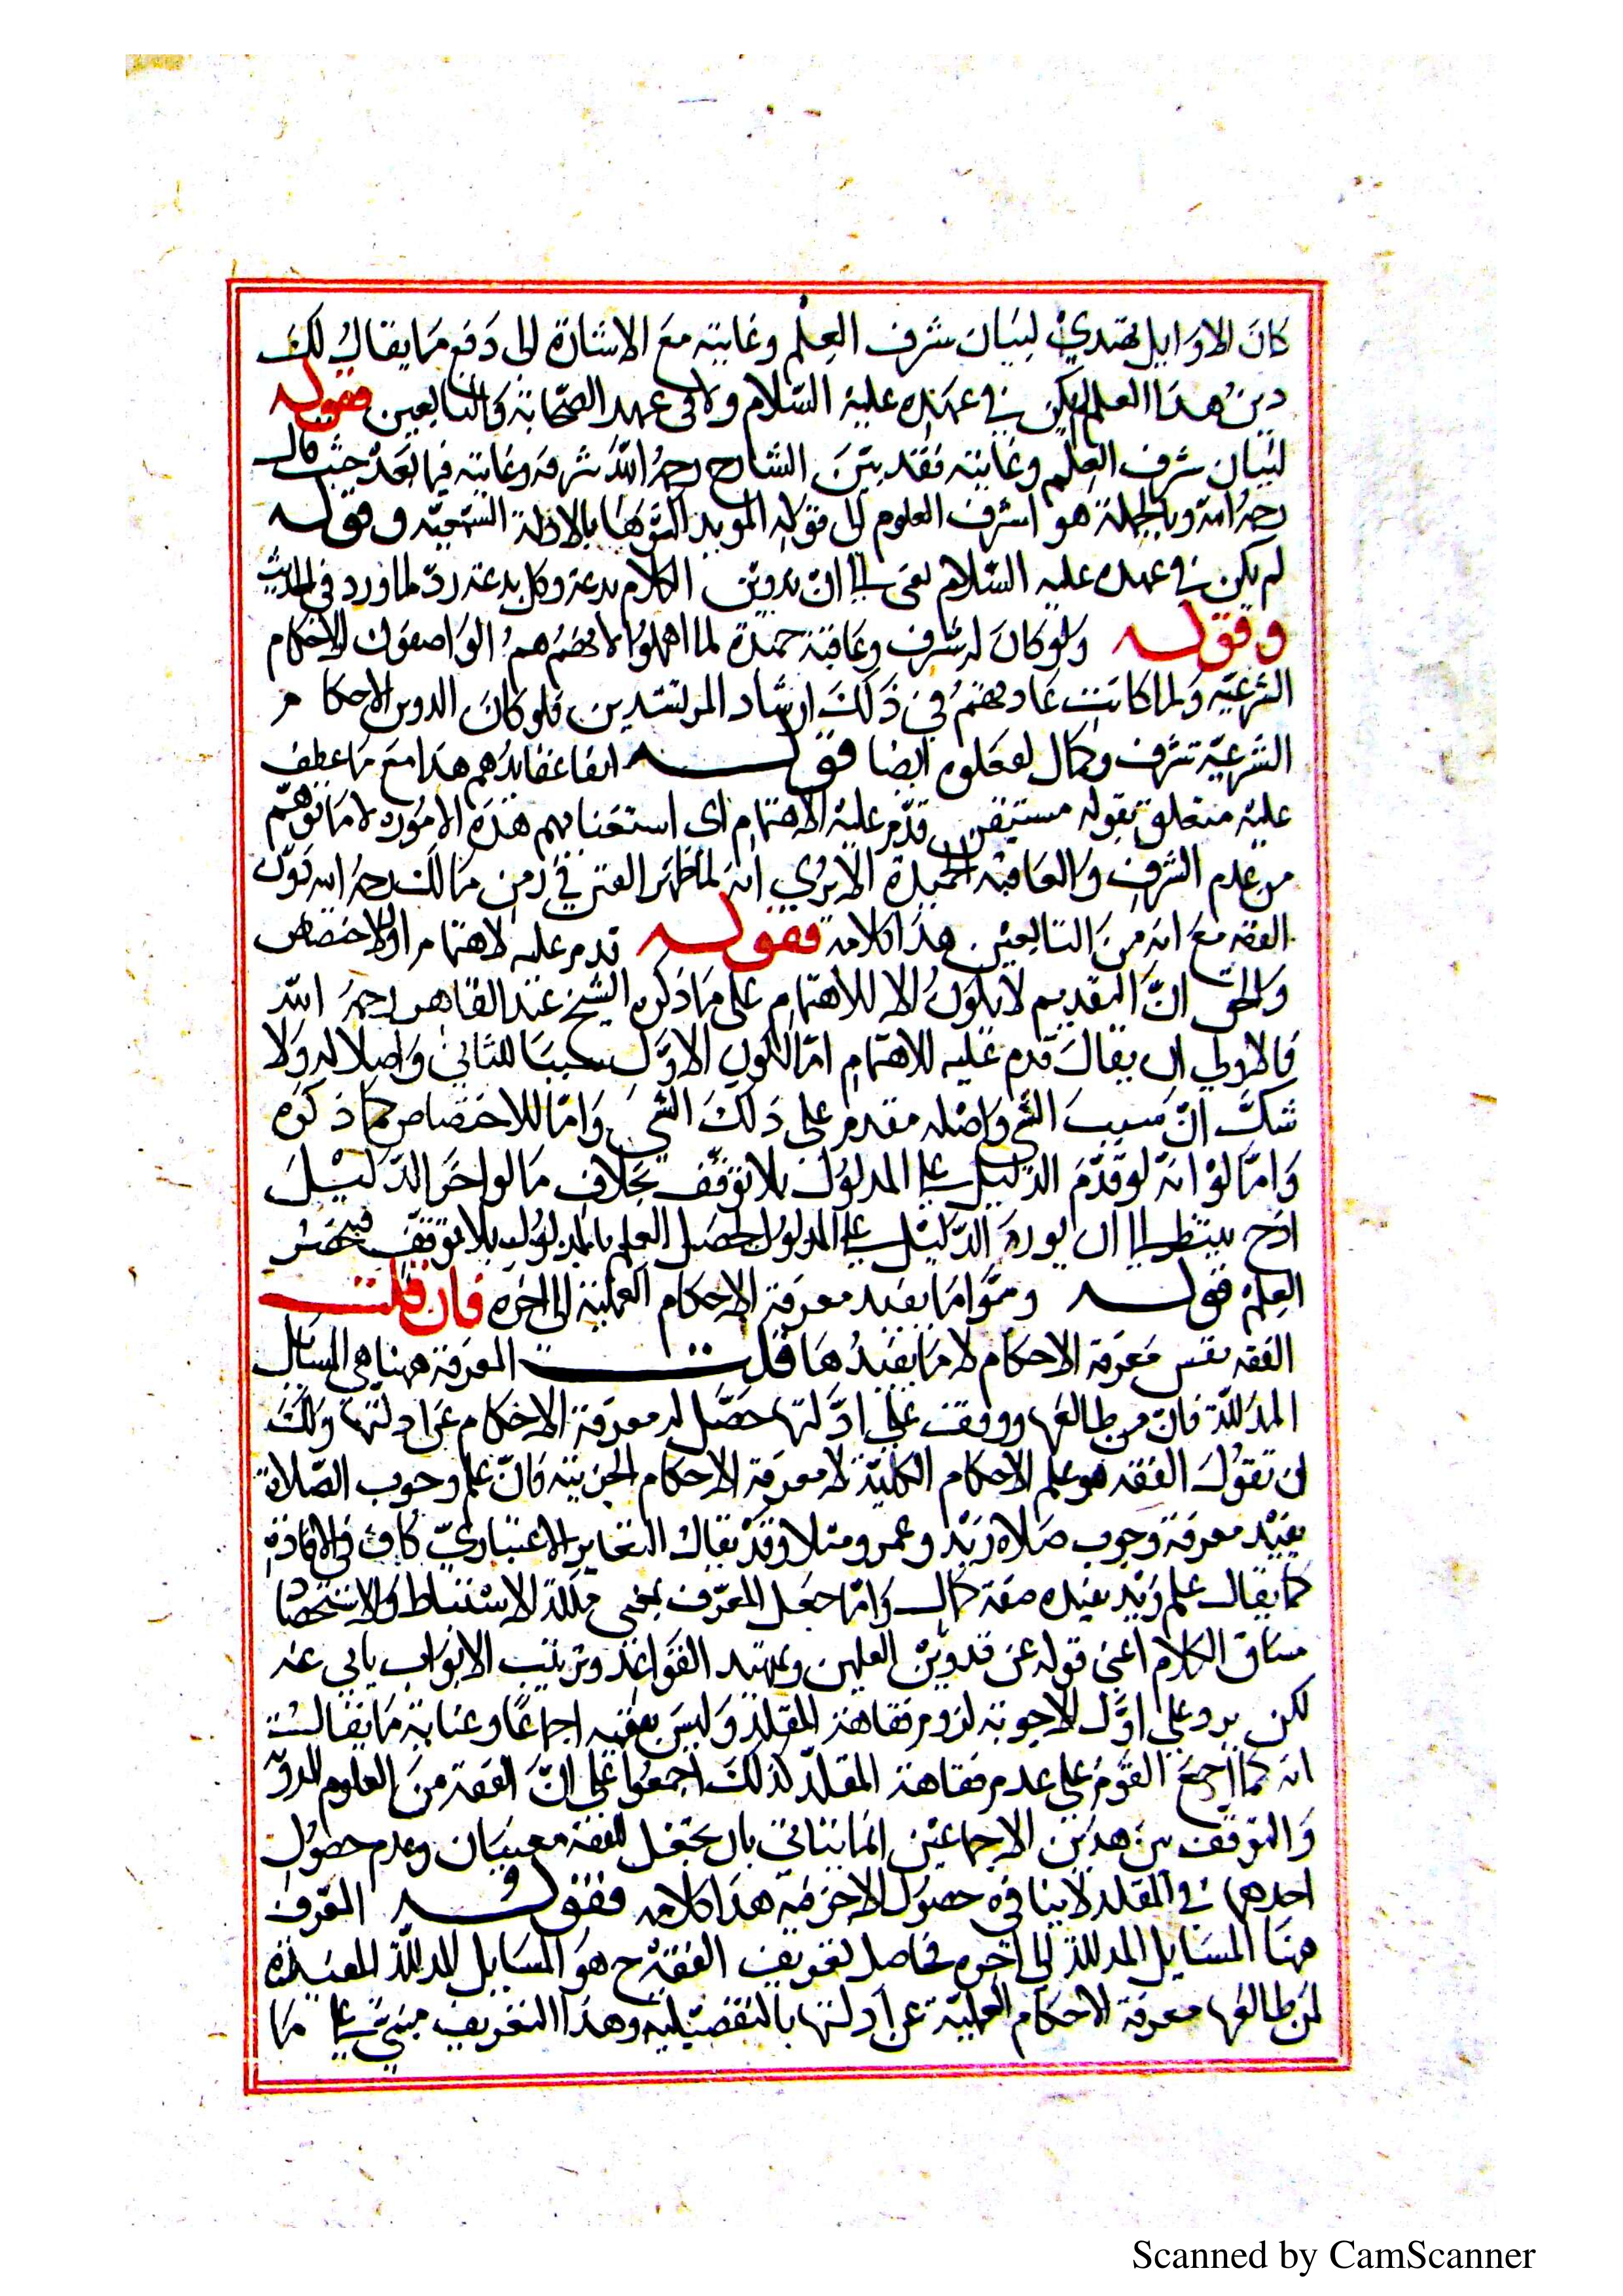 كان الاوايل تهتدي لبيان شرف العلم وغايته مع الاشارة الى دفع ما يقال لك
هذا العلم لم يكن في عهده عليه السلام ولا في عهد الصحابة والتابعين فقوله
لبيان شرف العلم وغايته فقد بين الشارح رحمه الله شرفه وغايته فيما بعد حيث قال
رحمه الله وبالجملة هو اشرف العلوم الى قوله المويد اكثرها بالادلة السمعيه وقوله
لم يكن في عهده عليه السلام يعني ان تدوين الكلام بدعة وكل بدعة رد لما ورد في الحديث
وقوله ولو كان له شرف وعاقبة حميدة لما اهملوا لانهم هم الواصفون للاحكام
الشرعيه ولما كانت عادتهم في ذلك ارشاد المرتشدين فلو كان الدوين الاحكام
الشرعية شرف وكمال لفعلوه ايضا قوله لصفا عقايدهم هذا مع ما عطف
عليه متعلق بقوله مستيقن قدم عليه الاهتمام اى استغنايهم هذه الامور لا ما توهم
من عدم الشرف والعاقبة الحميدة الا يرى انه لما ظهر الفتن في زمن مالك رحمه الله دون
الفقه مع انه من التابعين هذا كلامه فقوله قدم عليه لاهتمام او لاختصاص
والحق ان التقديم لا يكون الا للاهتمام على ما ذكره الشيخ عبد القاهر رحمه الله
فالاولى ان يقال قدم عليه للاهتمام اما لكون الاول سببا للثاني واصلا له ولا
شك ان سبب الشي واصله مقدم على ذلك الشي واما للاختصاص كما ذكره
واما لو انه لو قدم الدليل على المدلول بلا توقف بخلاف ما لو اخر الدليل
اذ ح ينتظر الى ان يورد الدليل على المدلول ليحصل العلم بالمدلول بلا توقف فيحصل
العلم قوله وسموا ما يفيد معرفة الاحكام العملية الى اخره فان قلت
الفقه نفس معرفة الاحكام لا ما يفيدها قلت المعرفة ههنا هي المسايل
المدللة فان من طالعها ووقف على ادلتها حصل له معرفة الاحكام عن ادلتها ولك
ان تقول الفقه هو علم الاحكام الكلية لا معرفة الاحكام الجزيية فان علم وجوب الصلاة
يفيد معرفة وجوب صلاة زيد وعمرو مثلا وقد يقال التغاير الاعتباري كاف في الافادة
كما يقال علم زيد يفيده صفة كمال واما جعل المعرف بمعنى ملكة الاستنباط والاستحضار
مساق الكلام اعني قوله عن تدوين العلمين وتمهيد القواعد وترتيب الابواب يابى عنه
لكن يرد على اول الاجوبة لزوم فقاهة المقلد وليس بفقيه اجماعا وغاية ما يقال
انه كما اجمع القوم على عدم فقاهة المقلد كذلك اجمعوا على ان الفقه من العلوم المدونة
والتوفيق بين هذين الاجماعين انما يتاتى بان يجعل للفقه معنيان وعدم حصول
احدهما في المقلد لا ينافي حصول الاخر فيه هذا كلامه فقوله المعرف
ههنا المسايل المدللة الى اخره فحاصل تعريف الفقه ح هو المسايل المدللة المفيدة
لمن طالعها معرفة الاحكام العملية عن ادلتها بالتفضيليه وهذا التعريف مبني على ما
Scanned by CamScanner